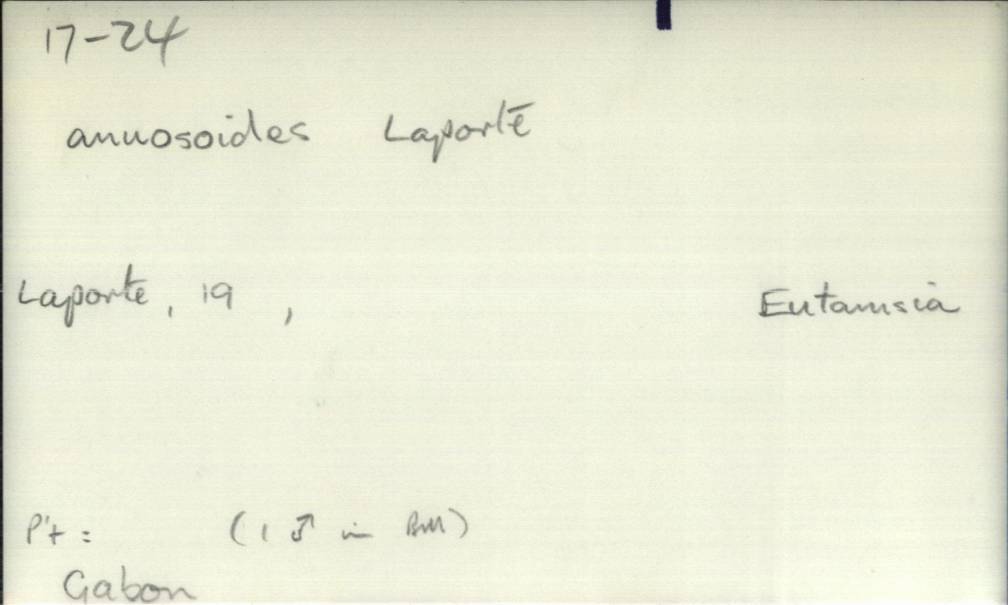 17-24
annosoides Laporte
Laporte, 19 , Eutamsia
P't : (1 ♂ in BM)
Gabon